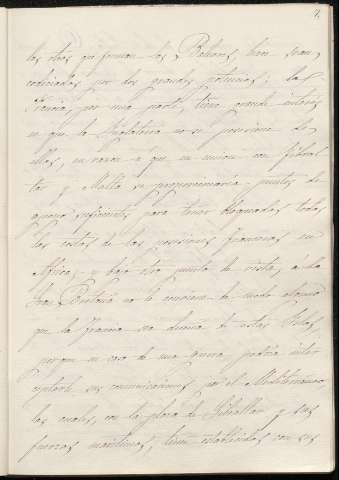 las tres que forman las Baleares, bien son
codiciadas por dos grandes potencias; la
Francia, por una parte, tiene grande interes
en que la Inglaterra no se posesione de
ellas, en razon a que en union con Gibral
tar y Malta se proporcionaria puntos de
apoyo suficientes para tener bloqueadas todas
las costas de las posesiones francesas en
Africa; y bajo otro punto de vista, á la
Gran Bretaña no le conviene de modo alguno
que la Francia sea dueña de estas Islas,
porque en caso de una guerra, podria inter
ceptarle sus comunicaciones por el Mediterraneo,
las cuales, con la plaza de Gibraltar y sus
fuerzas maritimas, tiene establecidas con sus